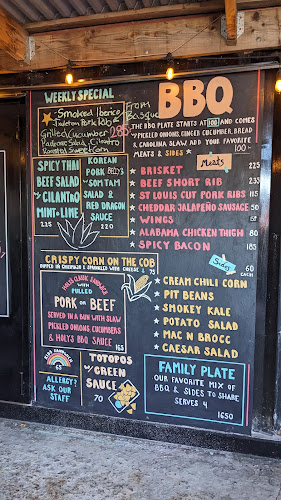 WEEKLY SPECIAL
Smoked Iberico
From
Pork Rib
Basque
Grilled Cucumber
285
Cilantro
Roasted Sweet Corn
SPICY THAI
BEEF SALAD
w/ CILANTRO
MINT + LIME
225
KOREAN
PORK BELLY
w/ SOM TAM
SALAD &
RED DRAGON
SAUCE
220
CRISPY CORN ON THE COB
& SPRINKLED WITH CHEESE &
75
HOLY'S CLASSIC SANDWICH
WITH
PULLED
PORK OR BEEF
SERVED IN A BUN WITH SLAW
PICKLED ONIONS CUCUMBERS
& HOLY'S BBQ SAUCE
165
KIDS SANDWICH
65
ALLERGY?
ASK OUR
STAFF
TOTOPOS
w/ GREEN
SAUCE
70
BBQ
THE BBQ PLATE STARTS AT 100 AND COMES
w/ PICKLED ONIONS, GINGER CUCUMBER, BREAD
& CAROLINA SLAW ADD YOUR FAVORITE
MEATS & SIDES
MEATS
BRISKET 225
BEEF SHORT RIB 235
ST LOUIS CUT PORK RIBS 115
CHEDDAR JALAPEÑO SAUSAGE 50
WINGS
ALABAMA CHICKEN THIGH 80
SPICY BACON 185
SIDES
60
EACH
CREAM CHILI CORN
PIT BEANS
SMOKEY KALE
POTATO SALAD
MAC N BROCC
CAESAR SALAD
FAMILY PLATE
OUR FAVORITE MIX OF
BBQ & SIDES TO SHARE
SERVES 4
1650